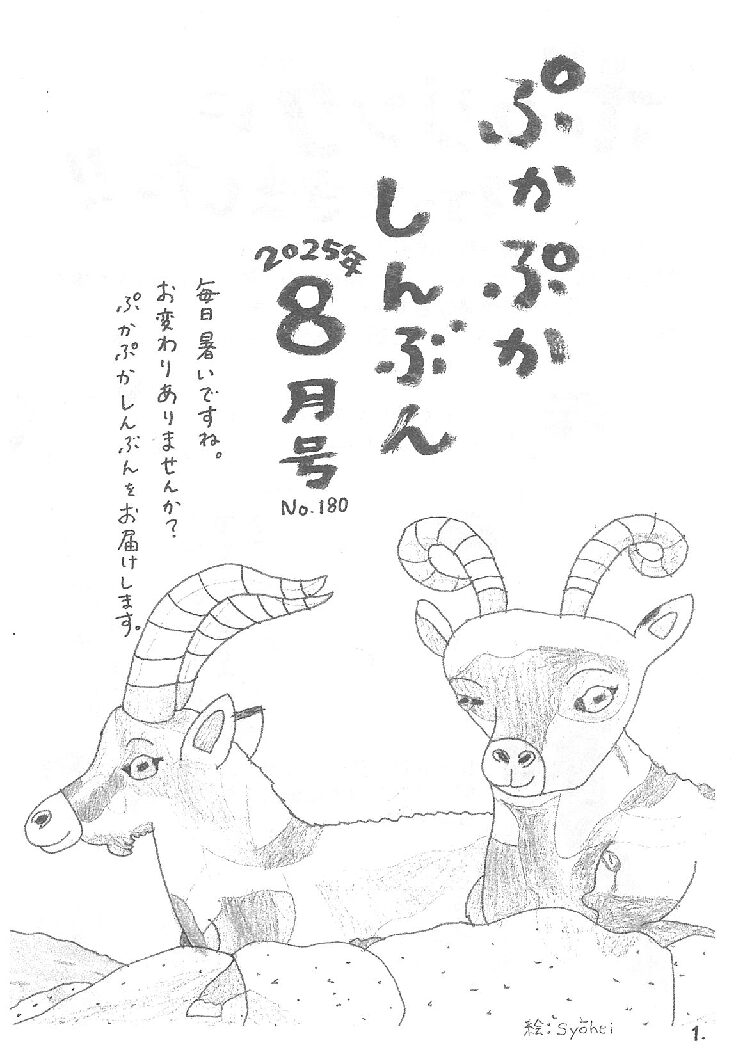 ぷかぷか
しんぶん
2025年
8月号
No.180
毎日暑いですね。
お変わりありませんか？
ぷかぷかしんぶんをお届けします。
絵:Syohei
1.